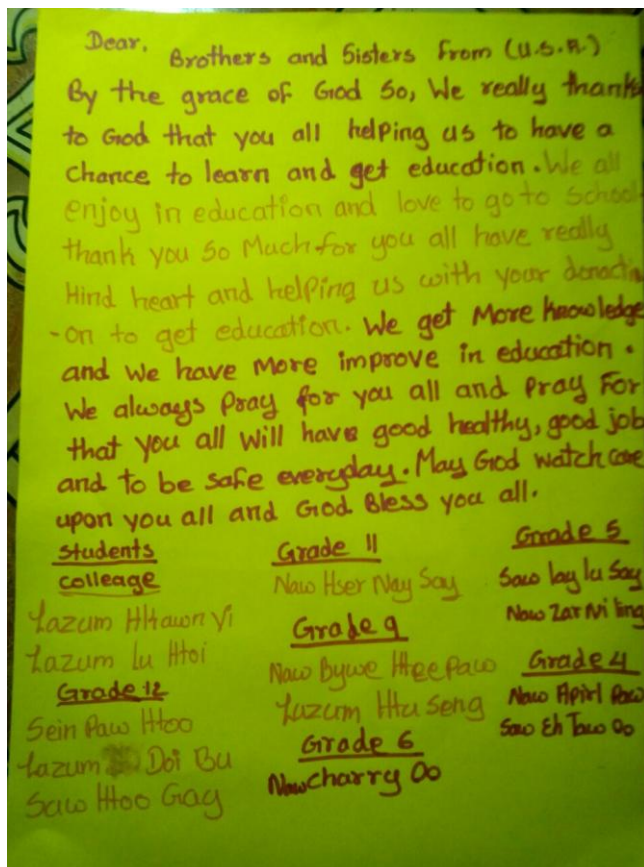 Dear. Brothers and Sisters from (U.S.A.)
By the grace of God So, We really thank
to God that you all helping us to have a
chance to learn and get education. We all
enjoy in education and love to go to School
thank you so Much for you all have really
Hind heart and helping us with your donacti
-on to get education. We get More knowledge
and we have more improve in education.
We always pray for you all and pray For
that you all will have good healthy, good job
and to be safe everyday. May God watch care
upon you all and God Bless you all.
Students
colleage
Lazum Hkawn Yi
Lazum Lu Htoi
Grade 12
Sein Paw Htoo
Lazum Doi Bu
Saw Htoo Gay
Grade 11
Naw Hser Nay Say
Grade 9
Naw Bywe Htee Paw
Lazum Htu Seng
Grade 6
Naw Charry Oo
Grade 5
Saw lay lu Say
Naw Zar Ni ling
Grade 4
Naw Apirl Paw
Saw Eh Taw Oo